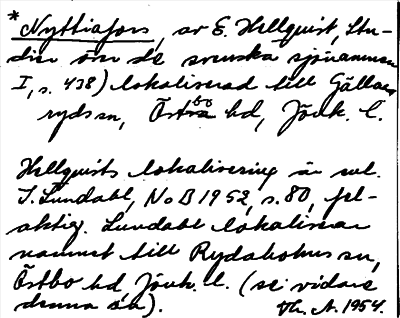 * Nyttiafors, av E. Hellquist, Stu-
dier över de svenska sjönamnen
I, s. 438) lokaliserad till Gällar-
ryds sn, Östbo hd, Jönk. l.
Hellquists lokalisering är enl.
I. Lundahl, NoB 1952, s. 80, fel-
aktig. Lundahl lokaliserar
namnet till Rydaholms sn,
Östbo hd Jönk. l. (se vidare
denna sn).
Vh. A. 1954.